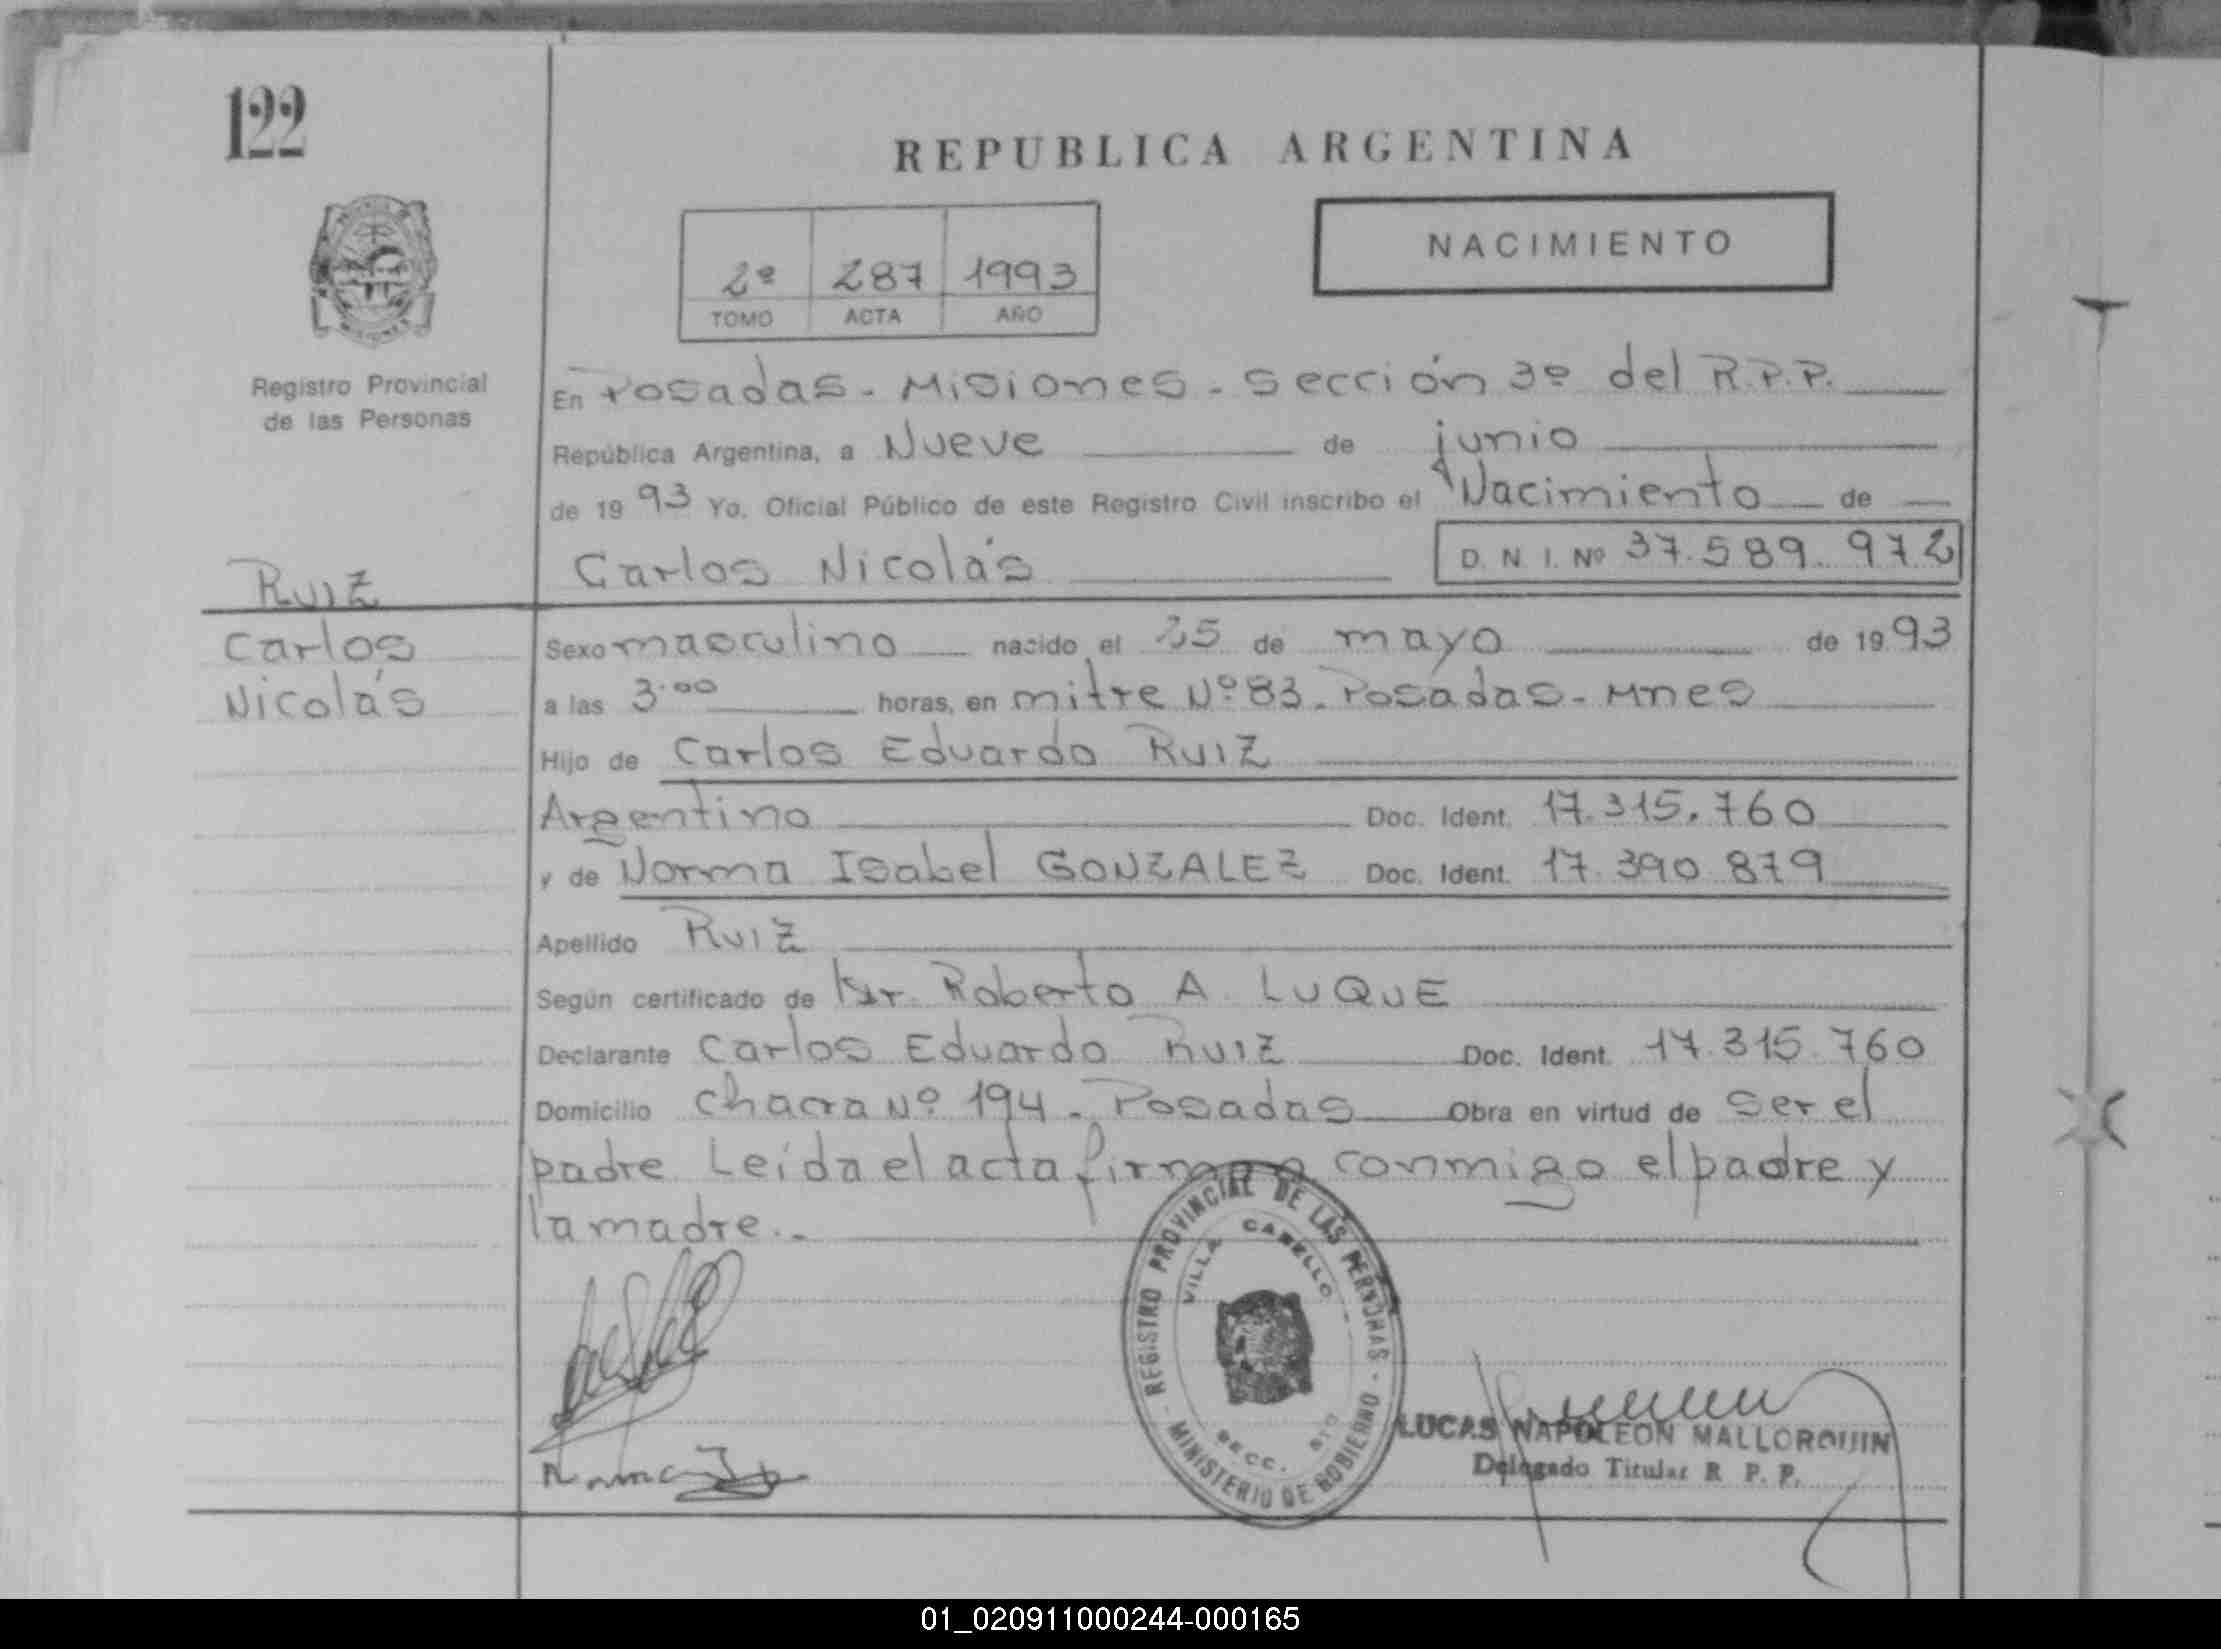 122
REPUBLICA ARGENTINA
NACIMIENTO
2º 287 1993
TOMO ACTA AÑO
Registro Provincial
de las Personas
En Posadas - Misiones - Sección 3º del R.P.P.
República Argentina, a Nueve de junio
de 19 93 Yo. Oficial Público de este Registro Civil inscribo el Nacimiento de
Carlos Nicolás D. N. I. Nº 37.589.972
RUIZ
Carlos
Nicolás
Sexo masculino nacido el 25 de mayo de 19 93
a las 3.00 horas, en mitre Nº 83. Posadas - Mnes
Hijo de Carlos Eduardo RUIZ
Argentino Doc. Ident. 17.315.760
y de Norma Isabel GONZALEZ Doc. Ident. 17.390.879
Apellido RUIZ
Según certificado de Roberto A. LUQUE
Declarante Carlos Eduardo RUIZ Doc. Ident. 17.315.760
Domicilio chacra Nº 194. Posadas Obra en virtud de ser el
padre. Leída el acta firman conmigo el padre y
la madre.-
REGISTRO PROVINCIAL DE LAS PERSONAS - MINISTERIO DE GOBIERNO -
VILLA CABELLO
SECC.
LUCAS NAPOLEON MALLORQUIN
Delegado Titular R. P. P.
01_020911000244-000165